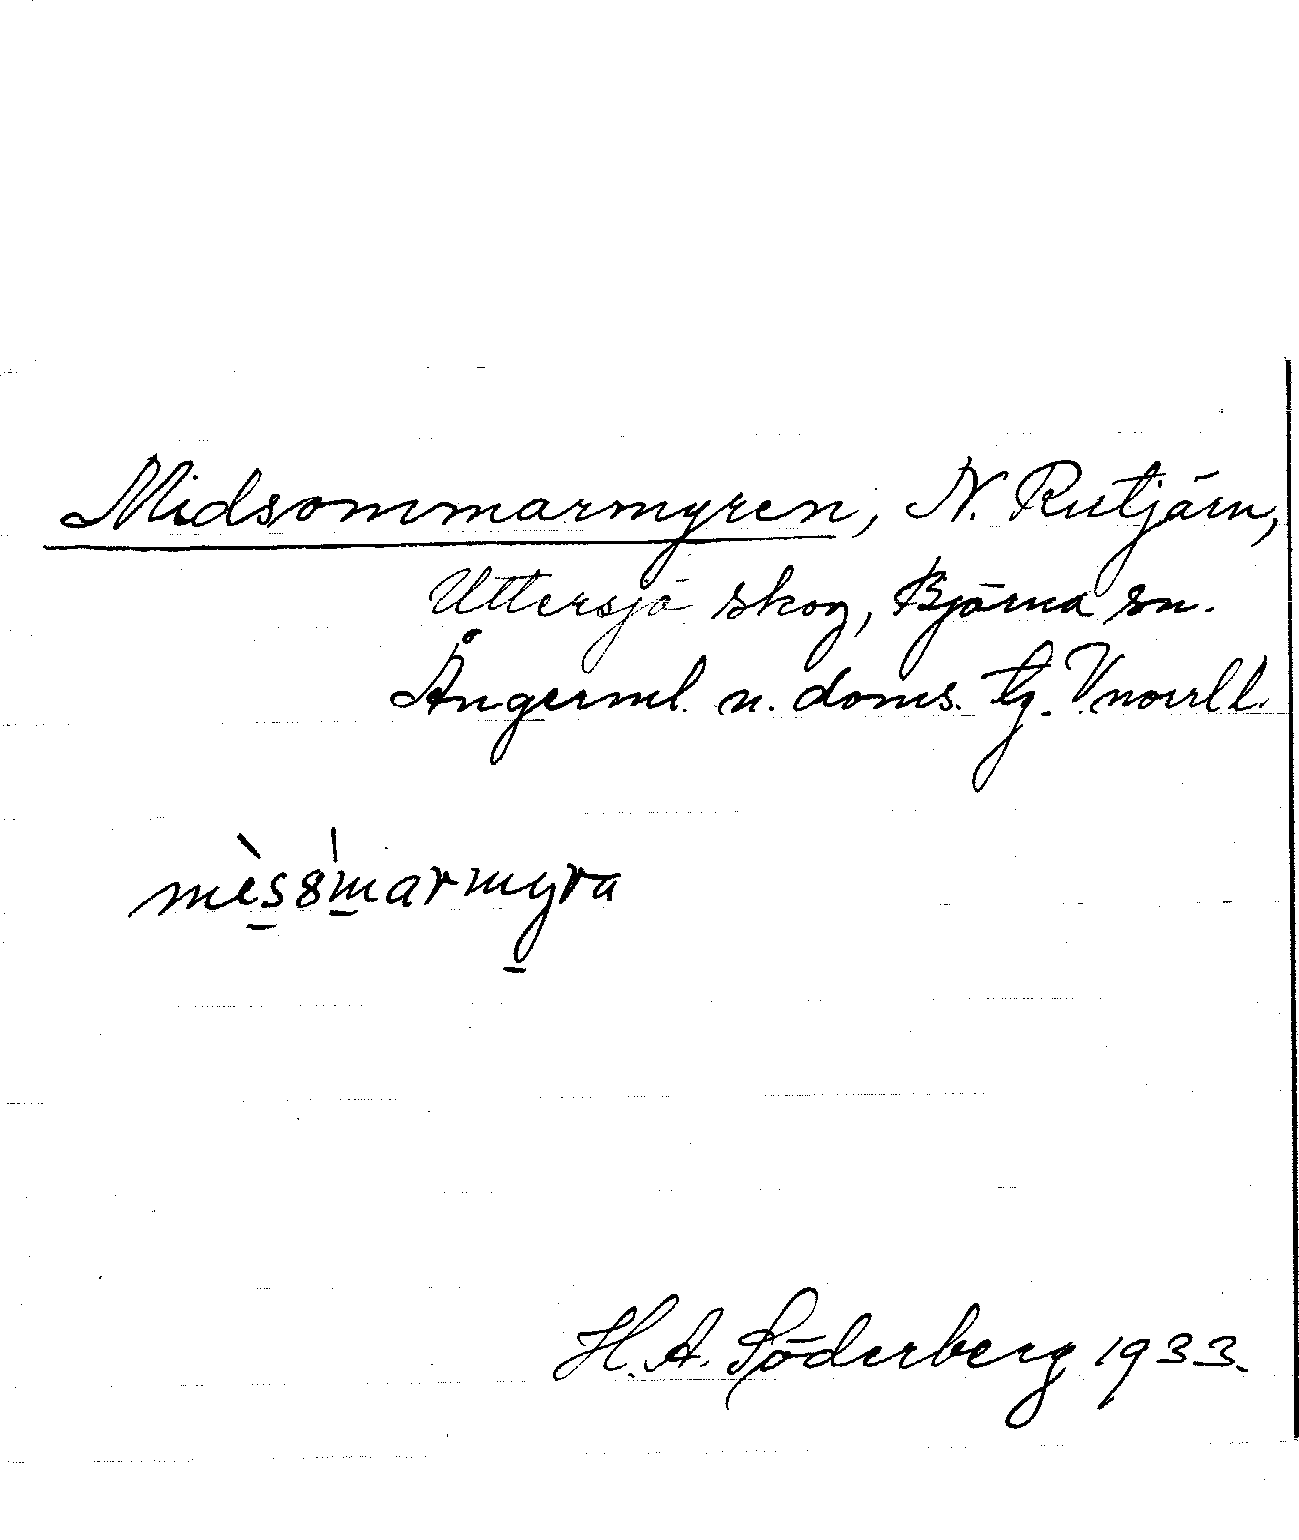 Midsommarmyren, N. Rutjärn,
Uttersjö skog, Björna sn.
Ångerml. n. doms. tg. Vnorrl l.
mèss8marmyra
H. A. Söderberg 1933.